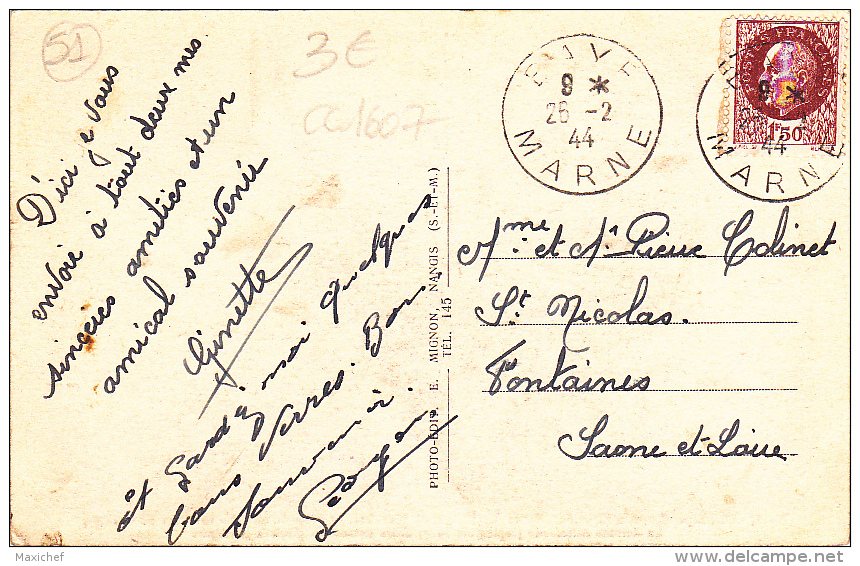 51
3€
D'ici je vous
envoie à tout deux mes
sincères amitiés et un
amical souvenir
Ginette
et Gardé moi quelques
bons Verres. Bon
Souvenir.
PHOTO-EDIT. E. MIGNON, NANGIS (S.-ET-M.)
TÉL. 145
9 *
26 -2
44
MARNE
POSTES FRANÇAISES
1F50
9 *
44
MARNE
Mme et Mr Pierre Colinet
St Nicolas.
Fontaines
Saone et Loire
Maxichef
delcampe.net